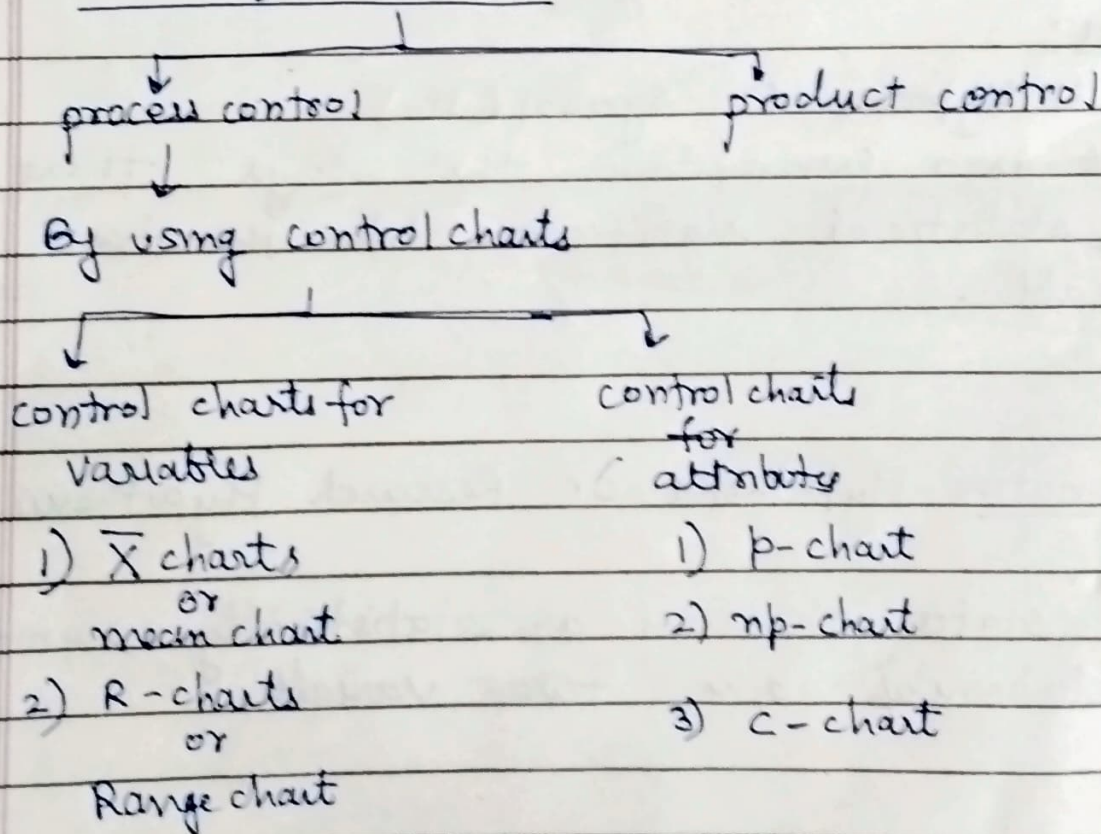 process control
product control
By using control charts
control charts for
variables
1) X̅ charts
or
mean chart
2) R - charts
or
Range chart
control charts
for
attributes
1) p - chart
2) np - chart
3) c - chart